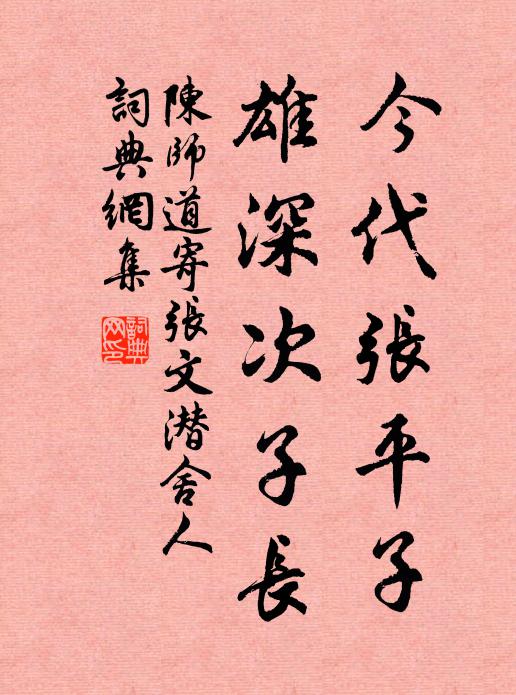 今代張平子
雄深次子長
陳師道寄張文潜舍人
詞典網集
詞典网印